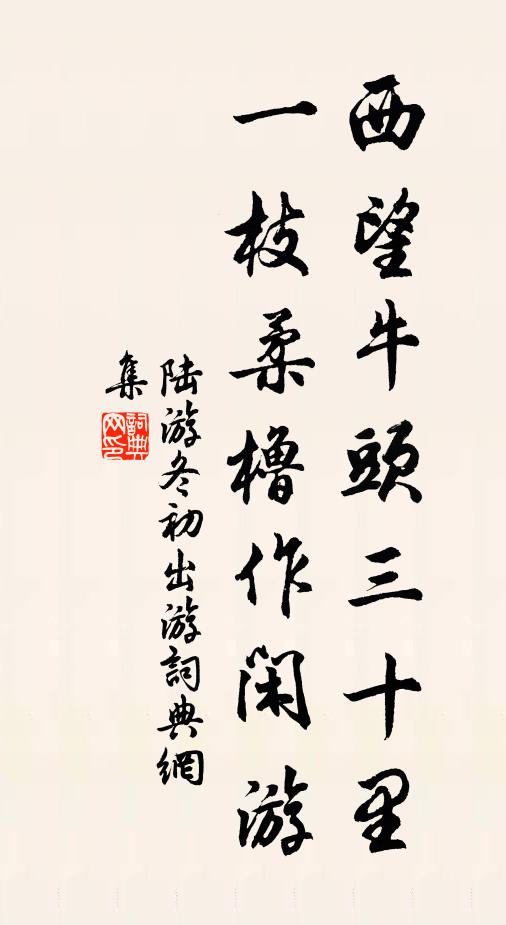 西望牛頭三十里
一枝柔櫓作閑游
陆游冬初出游詞典網
集
詞典
网印